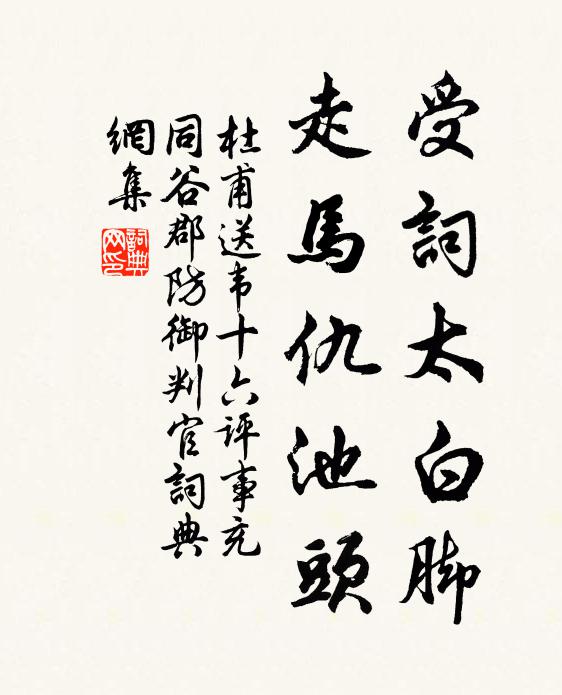 受詞太白脚
走馬仇池頭
杜甫送韦十六评事充
同谷郡防御判官詞典
網集
詞典网印